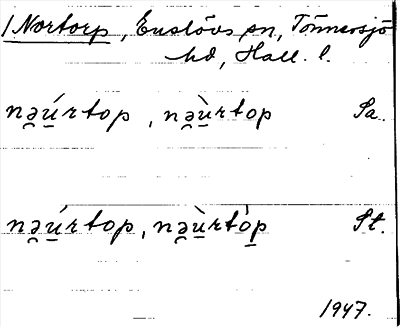 /Nortorp, Enslövs sn, Tönnersjö
hd, Hall. l.
nə̯ú̱rtop, nə̯ù̱rtop Sa.
nə̯ú̱rtop, nə̯ù̱rtò̱p St.
1947.